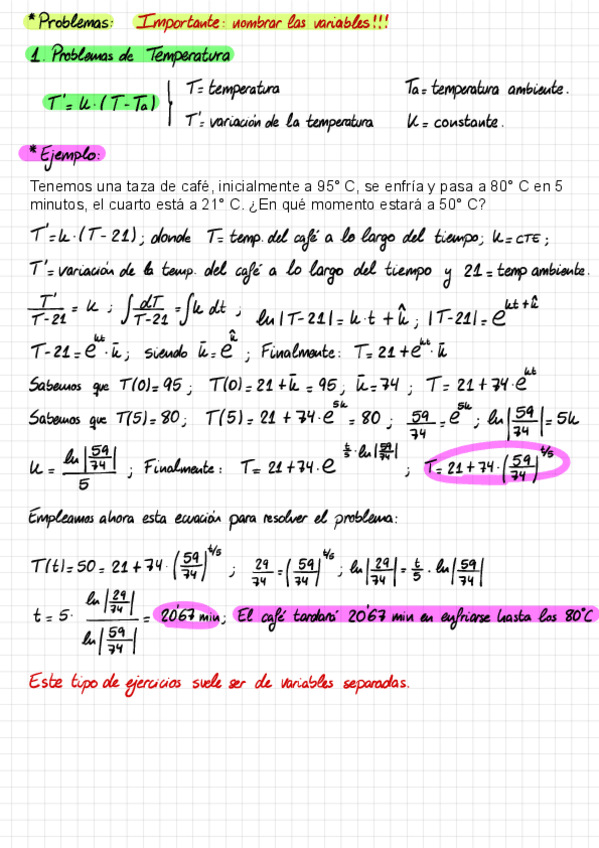 *Problemas: Importante: nombrar las variables!!!
1. Problemas de Temperatura
T' = k·(T-Ta) { T = temperatura Ta = temperatura ambiente.
T' = variación de la temperatura K = constante.
*Ejemplo:
Tenemos una taza de café, inicialmente a 95° C, se enfría y pasa a 80° C en 5
minutos, el cuarto está a 21° C. ¿En qué momento estará a 50° C?
T' = k·(T-21); donde T = temp. del café a lo largo del tiempo; K = CTE;
T' = variación de la temp. del café a lo largo del tiempo y 21 = temp ambiente.
T'/(T-21) = k ; ∫ dT/(T-21) = ∫ k dt ; ln|T-21| = k·t + k̂ ; |T-21| = e^(kt+k̂)
T-21 = e^(kt)·k̄ ; siendo k̄ = e^k̂ ; Finalmente: T = 21 + e^(kt)·k̄
Sabemos que T(0) = 95 ; T(0) = 21 + k̄ = 95 ; k̄ = 74 ; T = 21 + 74·e^(kt)
Sabemos que T(5) = 80 ; T(5) = 21 + 74·e^(5k) = 80 ; 59/74 = e^(5k) ; ln|59/74| = 5k
K = ln|59/74|/5 ; Finalmente: T = 21 + 74·e^(t/5·ln|59/74|) ; T = 21 + 74·(59/74)^(t/5)
Empleamos ahora esta ecuación para resolver el problema:
T(t) = 50 = 21 + 74·(59/74)^(t/5) ; 29/74 = (59/74)^(t/5) ; ln|29/74| = t/5·ln|59/74|
t = 5· ln|29/74|/ln|59/74| = 20'67 min ; El café tardará 20'67 min en enfriarse hasta los 80°C
Este tipo de ejercicios suele ser de variables separadas.